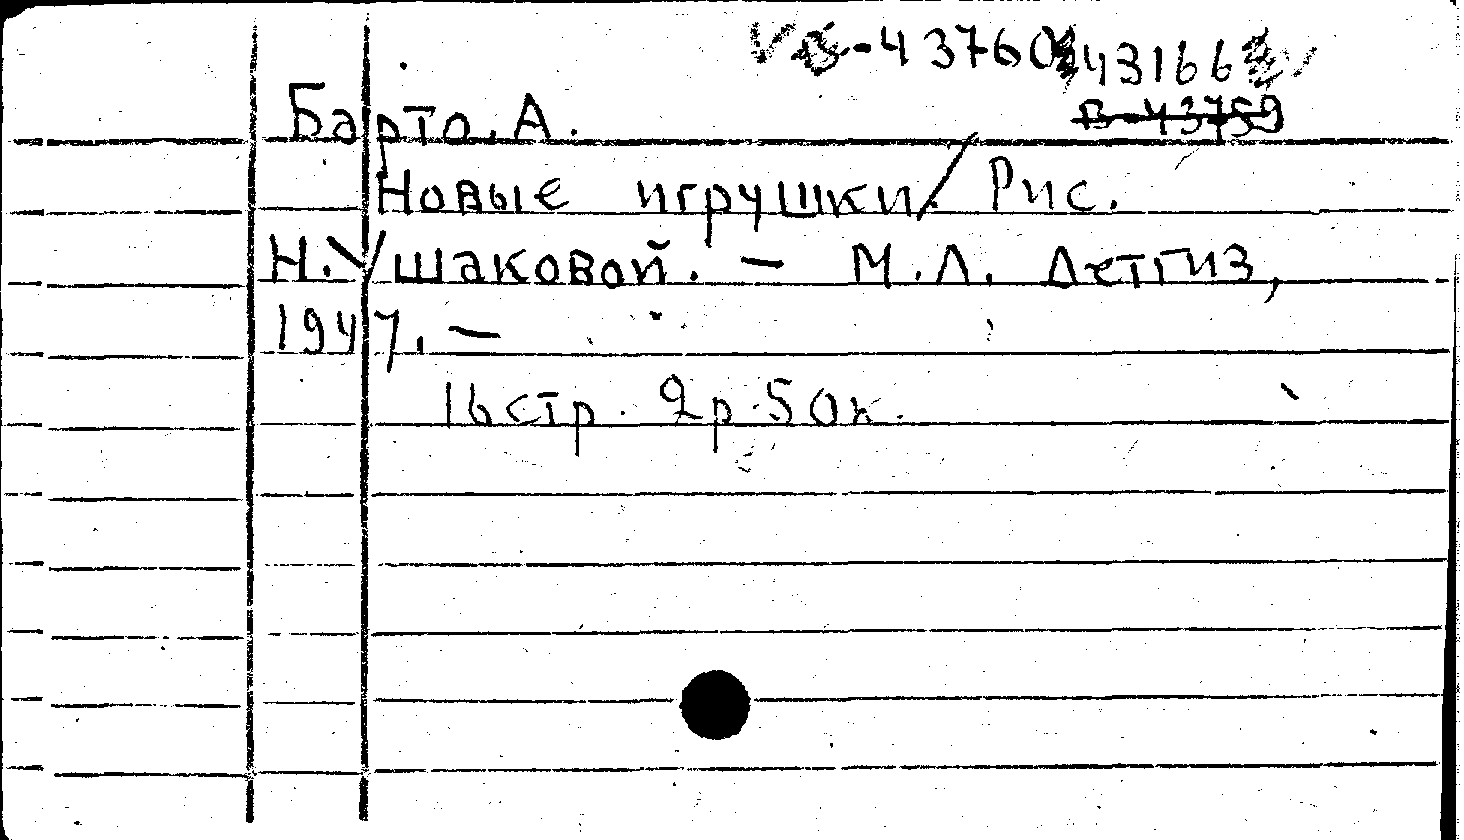 В-43760 43166
В-43759
Барто. А.
Новые игрушки/ Рис.
Н. Ушаковой. — М.Л. Детгиз,
1947. —
16 стр. 2р.50к.